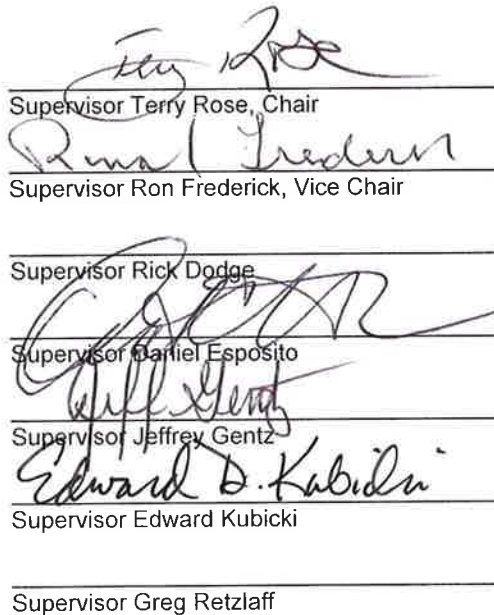 Terry Rose
Supervisor Terry Rose, Chair
Ronald Frederick
Supervisor Ron Frederick, Vice Chair
Supervisor Rick Dodge
Supervisor Daniel Esposito
Jeff Gentz
Supervisor Jeffrey Gentz
Edward D. Kubicki
Supervisor Edward Kubicki
Supervisor Greg Retzlaff